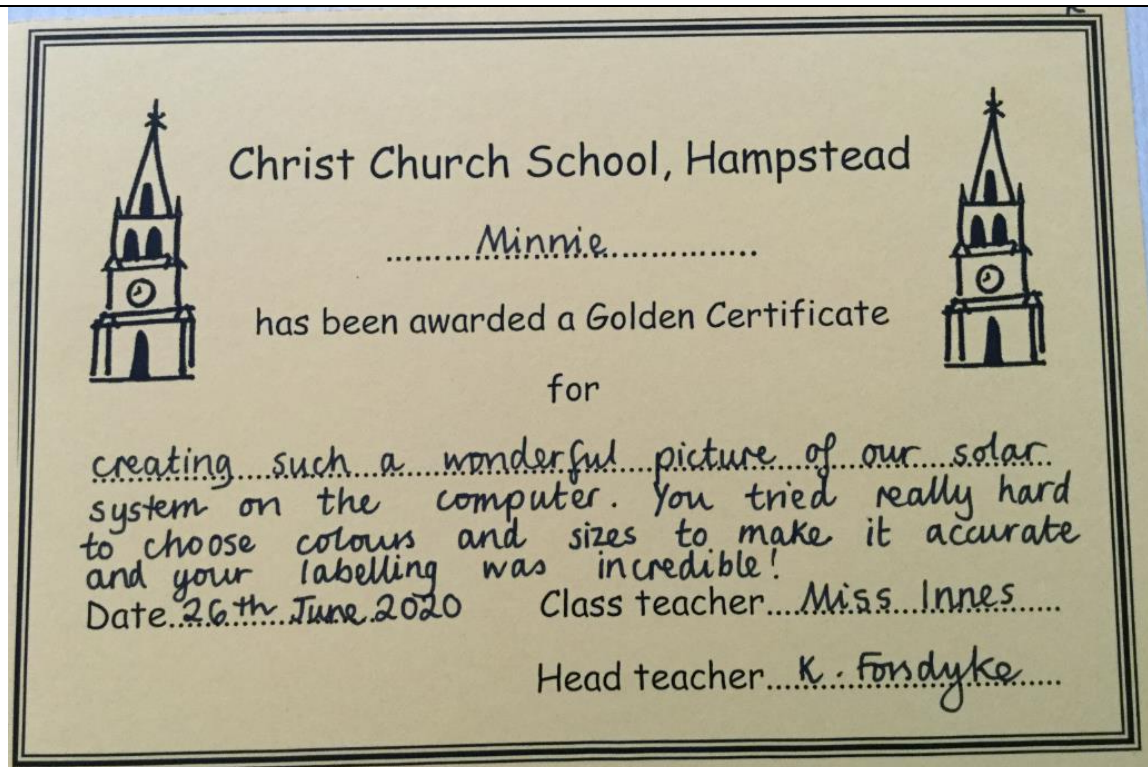 Christ Church School, Hampstead
Minnie
has been awarded a Golden Certificate
for
creating such a wonderful picture of our solar
system on the computer. You tried really hard
to choose colours and sizes to make it accurate
and your labelling was incredible!
Date 26th June 2020 Class teacher Miss Innes
Head teacher K. Forsdyke